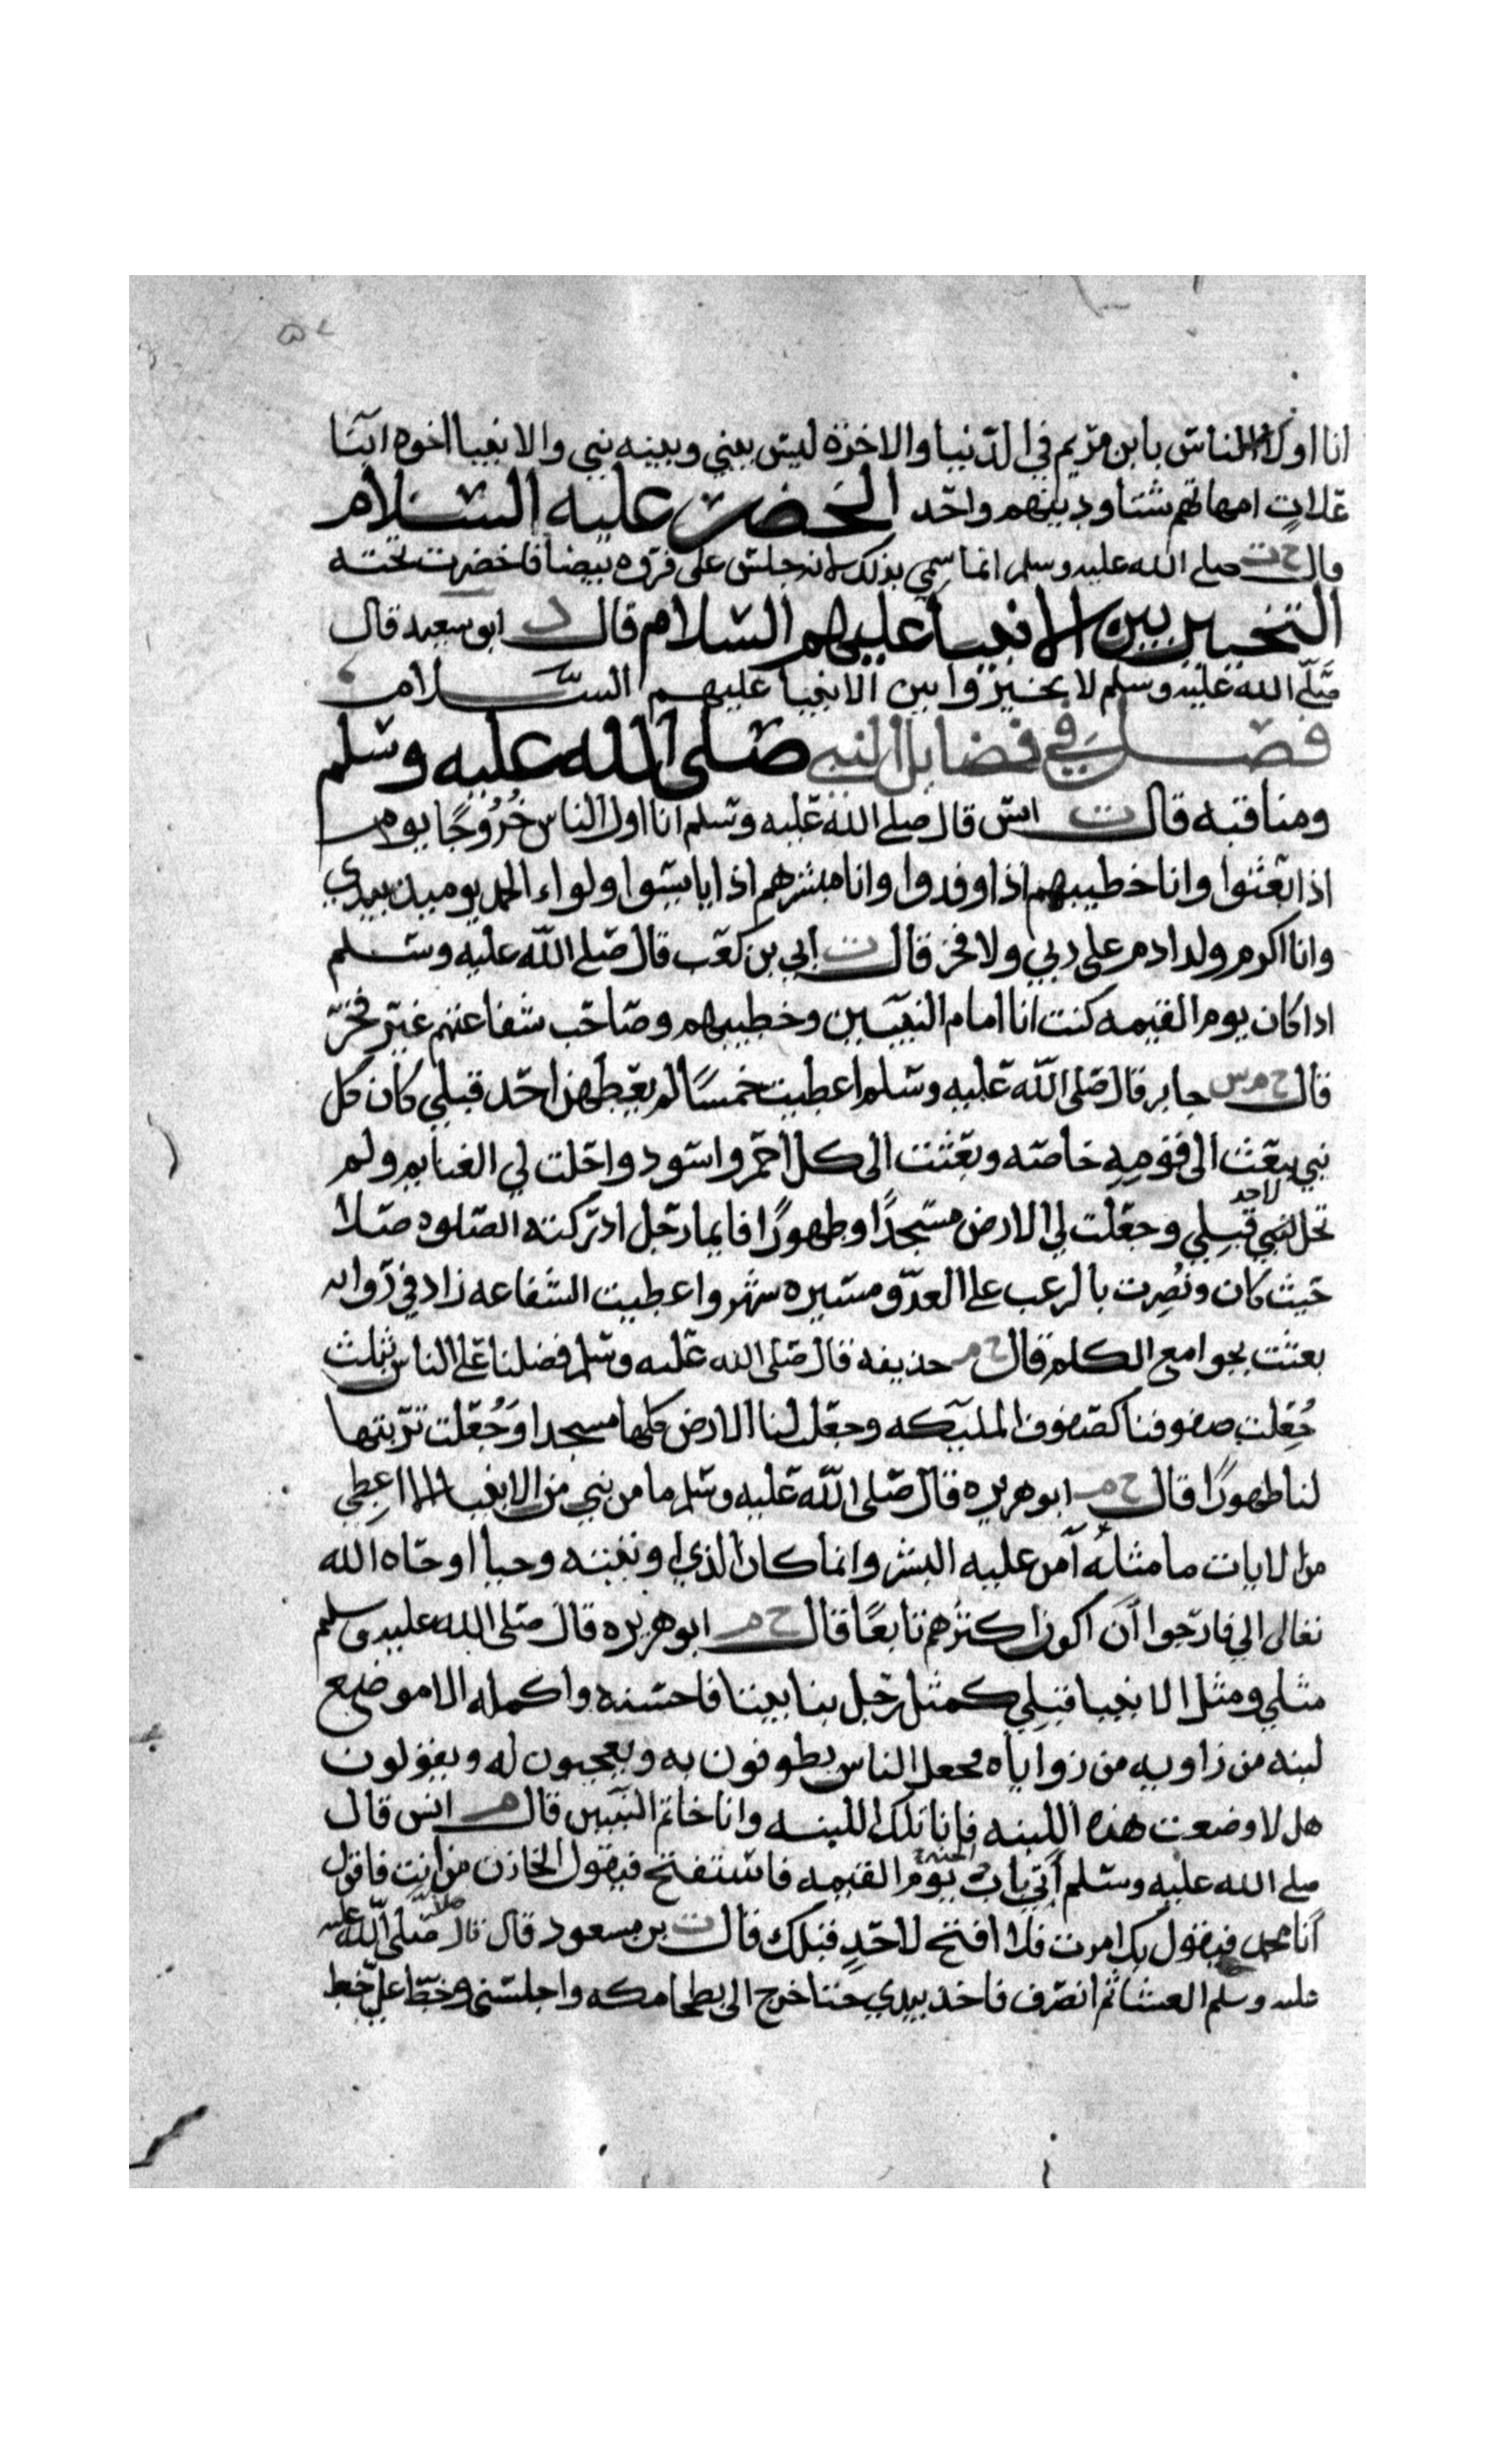 انا اولا الناس بابن مريم في الدنيا والاخرة ليس بيني وبينه نبي والانبيا اخوه ابنا
علات امهاتهم شتا ودينهم واحد الخضر عليه السلام
قال خ ت صلى الله عليه وسلم انما سمي بذلك لانه جلس على فروه بيضا فاخضرت تحته
التخيير بين الانبيا عليهم السلام قال د ابو سعيد قال
صلى الله عليه وسلم لا تخيروا بين الانبيا عليهم السلام
فصل في فضايل النبي صلى الله عليه وسلم
ومناقبه قال ت انس قال صلى الله عليه وسلم انا اول الناس خُرُوجًا يوم
اذا بعثوا وانا خطيبهم اذا وفدوا وانا مبشرهم اذا ايسوا ولواء الحمد يوميذ بيدي
وانا اكرم ولد ادم على ربي ولا فخر قال ت ابي بن كعب قال صلى الله عليه وسلم
اذا كان يوم القيمه كنت انا امام النبيين وخطيبهم وصاحب شفاعتهم غير فخر
قال خ م س جابر قال صلى الله عليه وسلم اعطيت خمسًا لم يعطهن احد قبلي كان كل
نبي يبعث الى قومِهِ خاصه وبعثت الى كل احمر واسود واحلت لي الغنايم ولم
تحل لنبي لاحد قبلي وجعلت لي الارض مسجدًا وطهورًا فايما رجل ادركته الصلوه صلا
حيث كان ونُصِرت بالرعب على العدو مسيره شهر واعطيت الشفاعه زاد في روايه
بعثت بجوامع الكلم قال خ م حذيفه قال صلى الله عليه وسلم فضلنا على الناس بثلث
جُعِلت صفوفنا كصفوف المليكه وجعل لنا الارض كلها مسجدا وَجُعلت تربتها
لنا طهورًا قال خ م ابو هريره قال صلى الله عليه وسلم ما من نبي من الانبيا الا اعطي
من الايات ما مثلُه آمن عليه البشر وانما كان الذي اوتيته وحيا اوحاه الله
تعالى الي فارجوا أن اكون اكثرهم تابعًا قال خ م ابو هريره قال صلى الله عليه وسلم
مثلي ومثل الانبيا قبلي كمثل رجل بنا بيتا فاحسنه واكمله الا موضع
لبنه من زاويه من زواياه فجعل الناس يطوفون به ويعجبون له ويقولون
هل لا وضعت هذه اللبنه فانا تلك اللبنه وانا خاتم النبيين قال م انس قال
صلى الله عليه وسلم آتي باب الجنة يوم القيمه فاستفتح فيقول الخازن من انت فاقول
أنا محمد فيقول بك امرت فلا افتح لاحدٍ قبلك قال ت بن مسعود قال قال صلى الله عليه
عليه وسلم العشا ثم انصرف فاخذ بيدي حتا خرج الى بطحا مكه واجلسني وخط علي خط